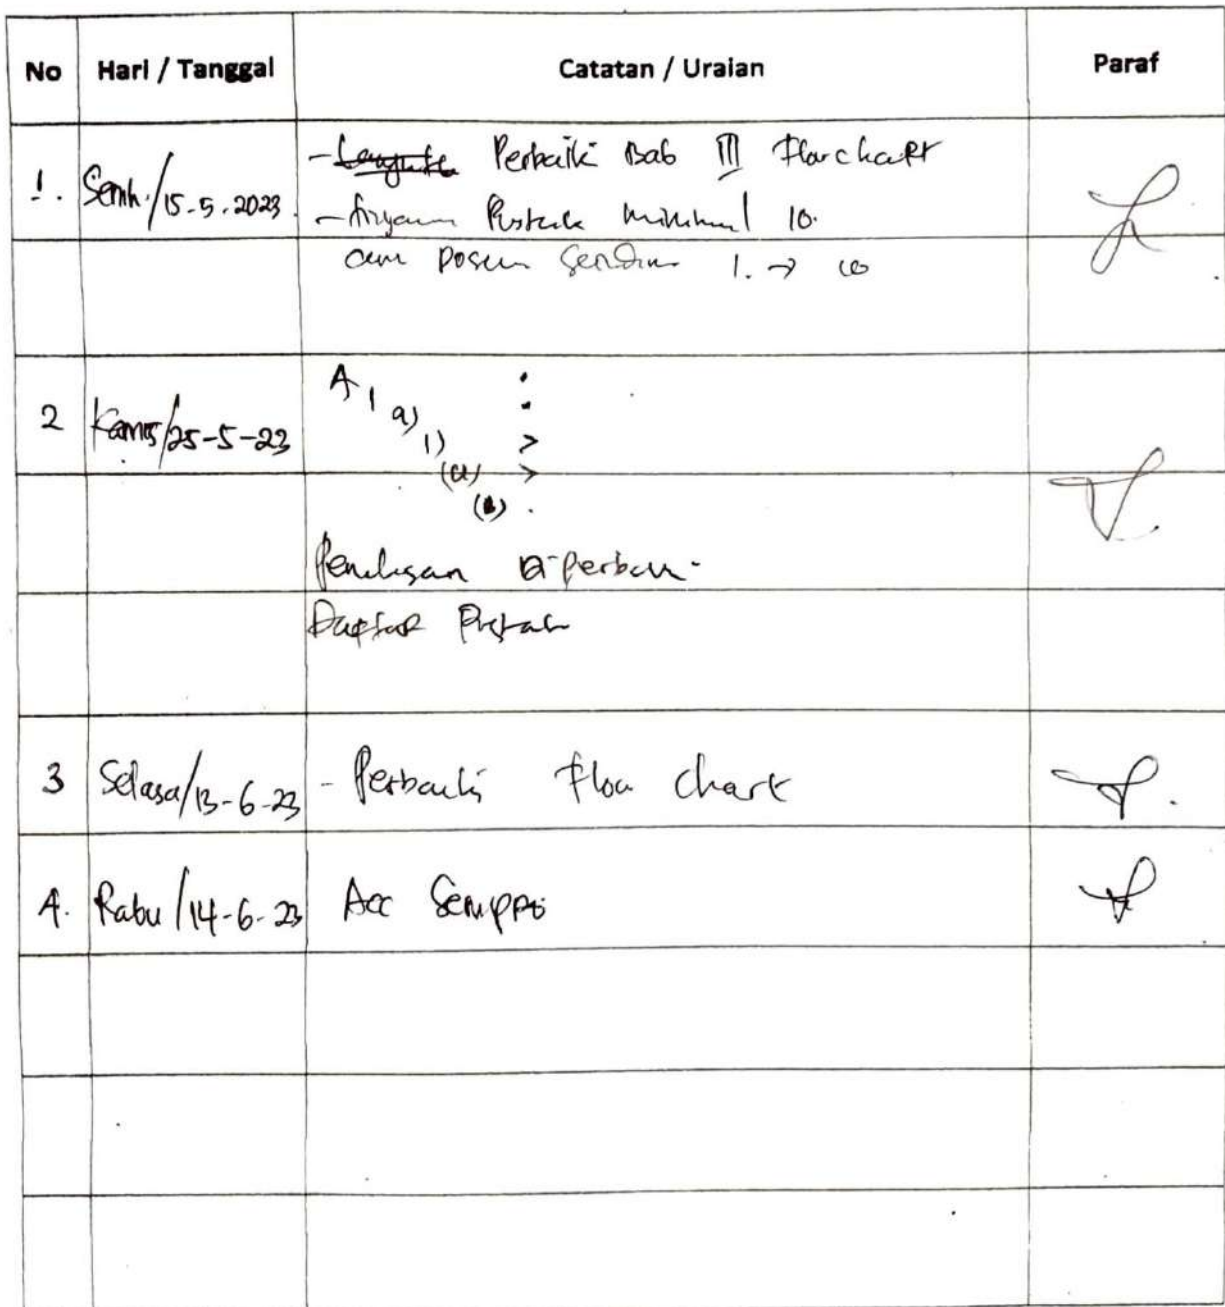 No Hari / Tanggal Catatan / Uraian Paraf
1. Senin/15-5-2023. - Perbaiki Bab III Flowchart
- Pustaka minimal 10.
1. → 10
A 1 a) 1) (a) (1)
2 Kamis/25-5-23
Penulisan
Daftar Pustaka
3 Selasa/13-6-23 - Perbaiki Flow chart
4. Rabu/14-6-23 Acc Sempro